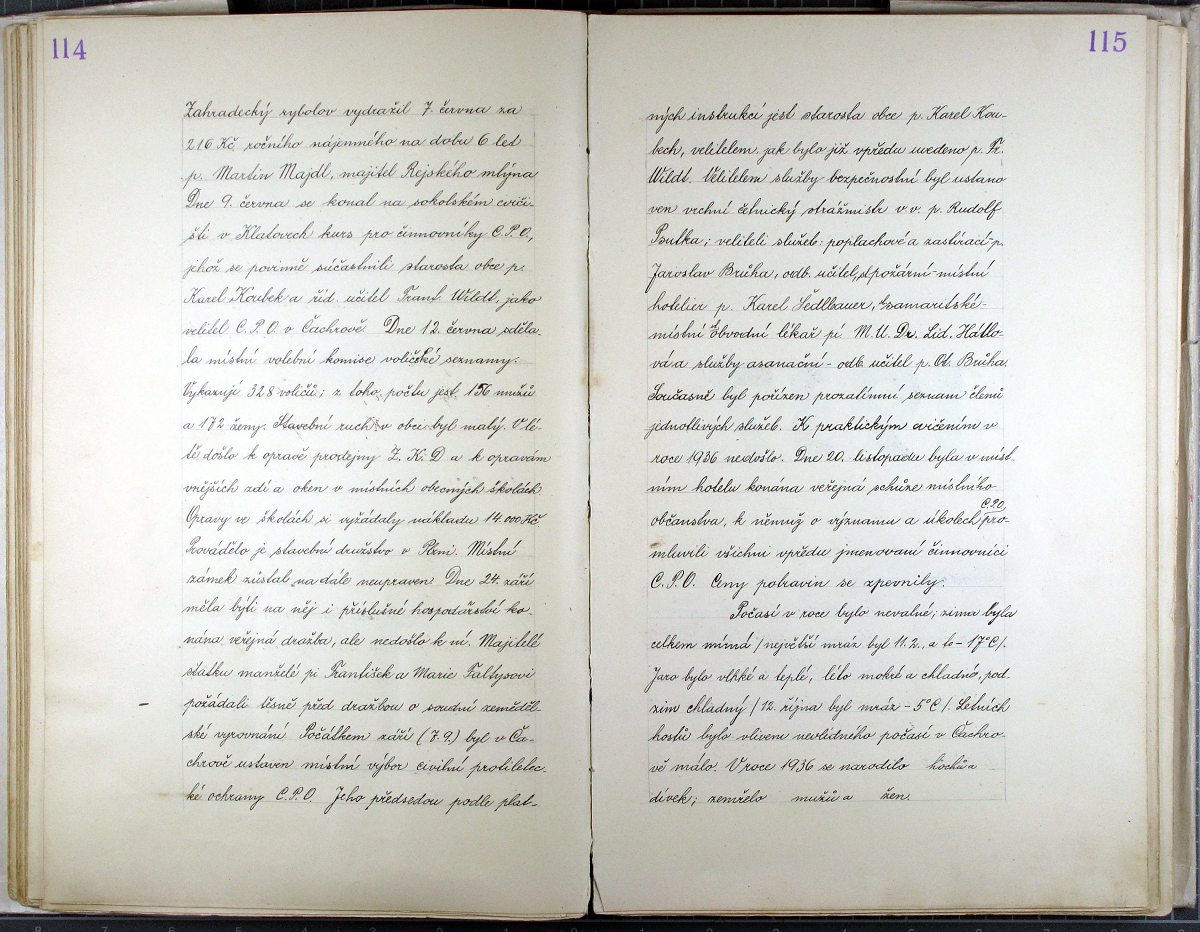 114
Zahradecký rybolov vydražil 7. června za
216 Kč ročního nájemného na dobu 6 let
p. Martin Majdl, majitel Rejského mlýna
Dne 9. června se konal na sokolském cviči-
šti v Klatovech kurs pro činnovníky C.P.O.,
jehož se povinně súčastnili starosta obce p.
Karel Koubek a říd. učitel Frant. Wildt, jako
velitel C.P.O. v Čachrově Dne 12. června sděla-
la místní volební komise voličské seznamy.
Vykazují 328 voličů; z toho počtu jest 156 mužů
a 172 ženy. Stavební ruch v obci byl malý. V lé-
tě došlo k opravě prodejny Z.K.D a k opravám
vnějších zdí a oken v místních obecných školách.
Opravy ve školách si vyžádaly nákladu 14.000 Kč
Provádělo je stavební družstvo v Plzni. Místní
zámek zůstal na dále neupraven Dne 24. září
měla býti na něj i příslušné hospodářství ko-
nána veřejná dražba, ale nedošlo k ní. Majitelé
statku manželé pí František a Marie Faltysovi
požádali těsně před dražbou o soudní zeměděl-
ské vyrovnání Počátkem září (7.9.) byl v Ča-
chrově ustaven místní výbor civilní protiletec-
ké ochrany C.P.O. Jeho předsedou podle plat-
115
ných instrukcí jest starosta obce p. Karel Kou-
bech, velitelem jak bylo již vpředu uvedeno p. Fr.
Wildt. Velitelem služby bezpečnostní byl ustano
ven vrchní četnický strážmistr v.v. p. Rudolf
Psutka; veliteli služeb: poplachové a zastírací-p.
Jaroslav Brůha, odb. učitel, požární-místní
hotelier p. Karel Sedlbauer, samaritské-
místní obvodní lékař pí M.U.Dr. Lid. Hátlo-
vá a služby asanační - odb. učitel p. Ot. Brůha.
Současně byl pořízen prozatímní seznam členů
jednotlivých služeb. K praktickým cvičením v
roce 1936 nedošlo. Dne 20. listopadu byla v míst-
ním hotelu konána veřejná schůze místního
občanstva, k němuž o významu a úkolech C.P.O. pro-
mluvili všichni vpředu jmenovaní činnovníci
C.P.O. Ceny potravin se zpevnily.
Počasí v roce bylo nevalné; zima byla
celkem mírná /největší mráz byl 11.2., a to - 17°C/.
Jaro bylo vlhké a teplé, léto mokré a chladné, pod-
zim chladný /12. října byl mráz - 5°C/. Letních
hostů bylo vlivem nevlídného počasí v Čachro-
vě málo. V roce 1936 se narodilo hochů a
dívek; zemřelo mužů a žen.